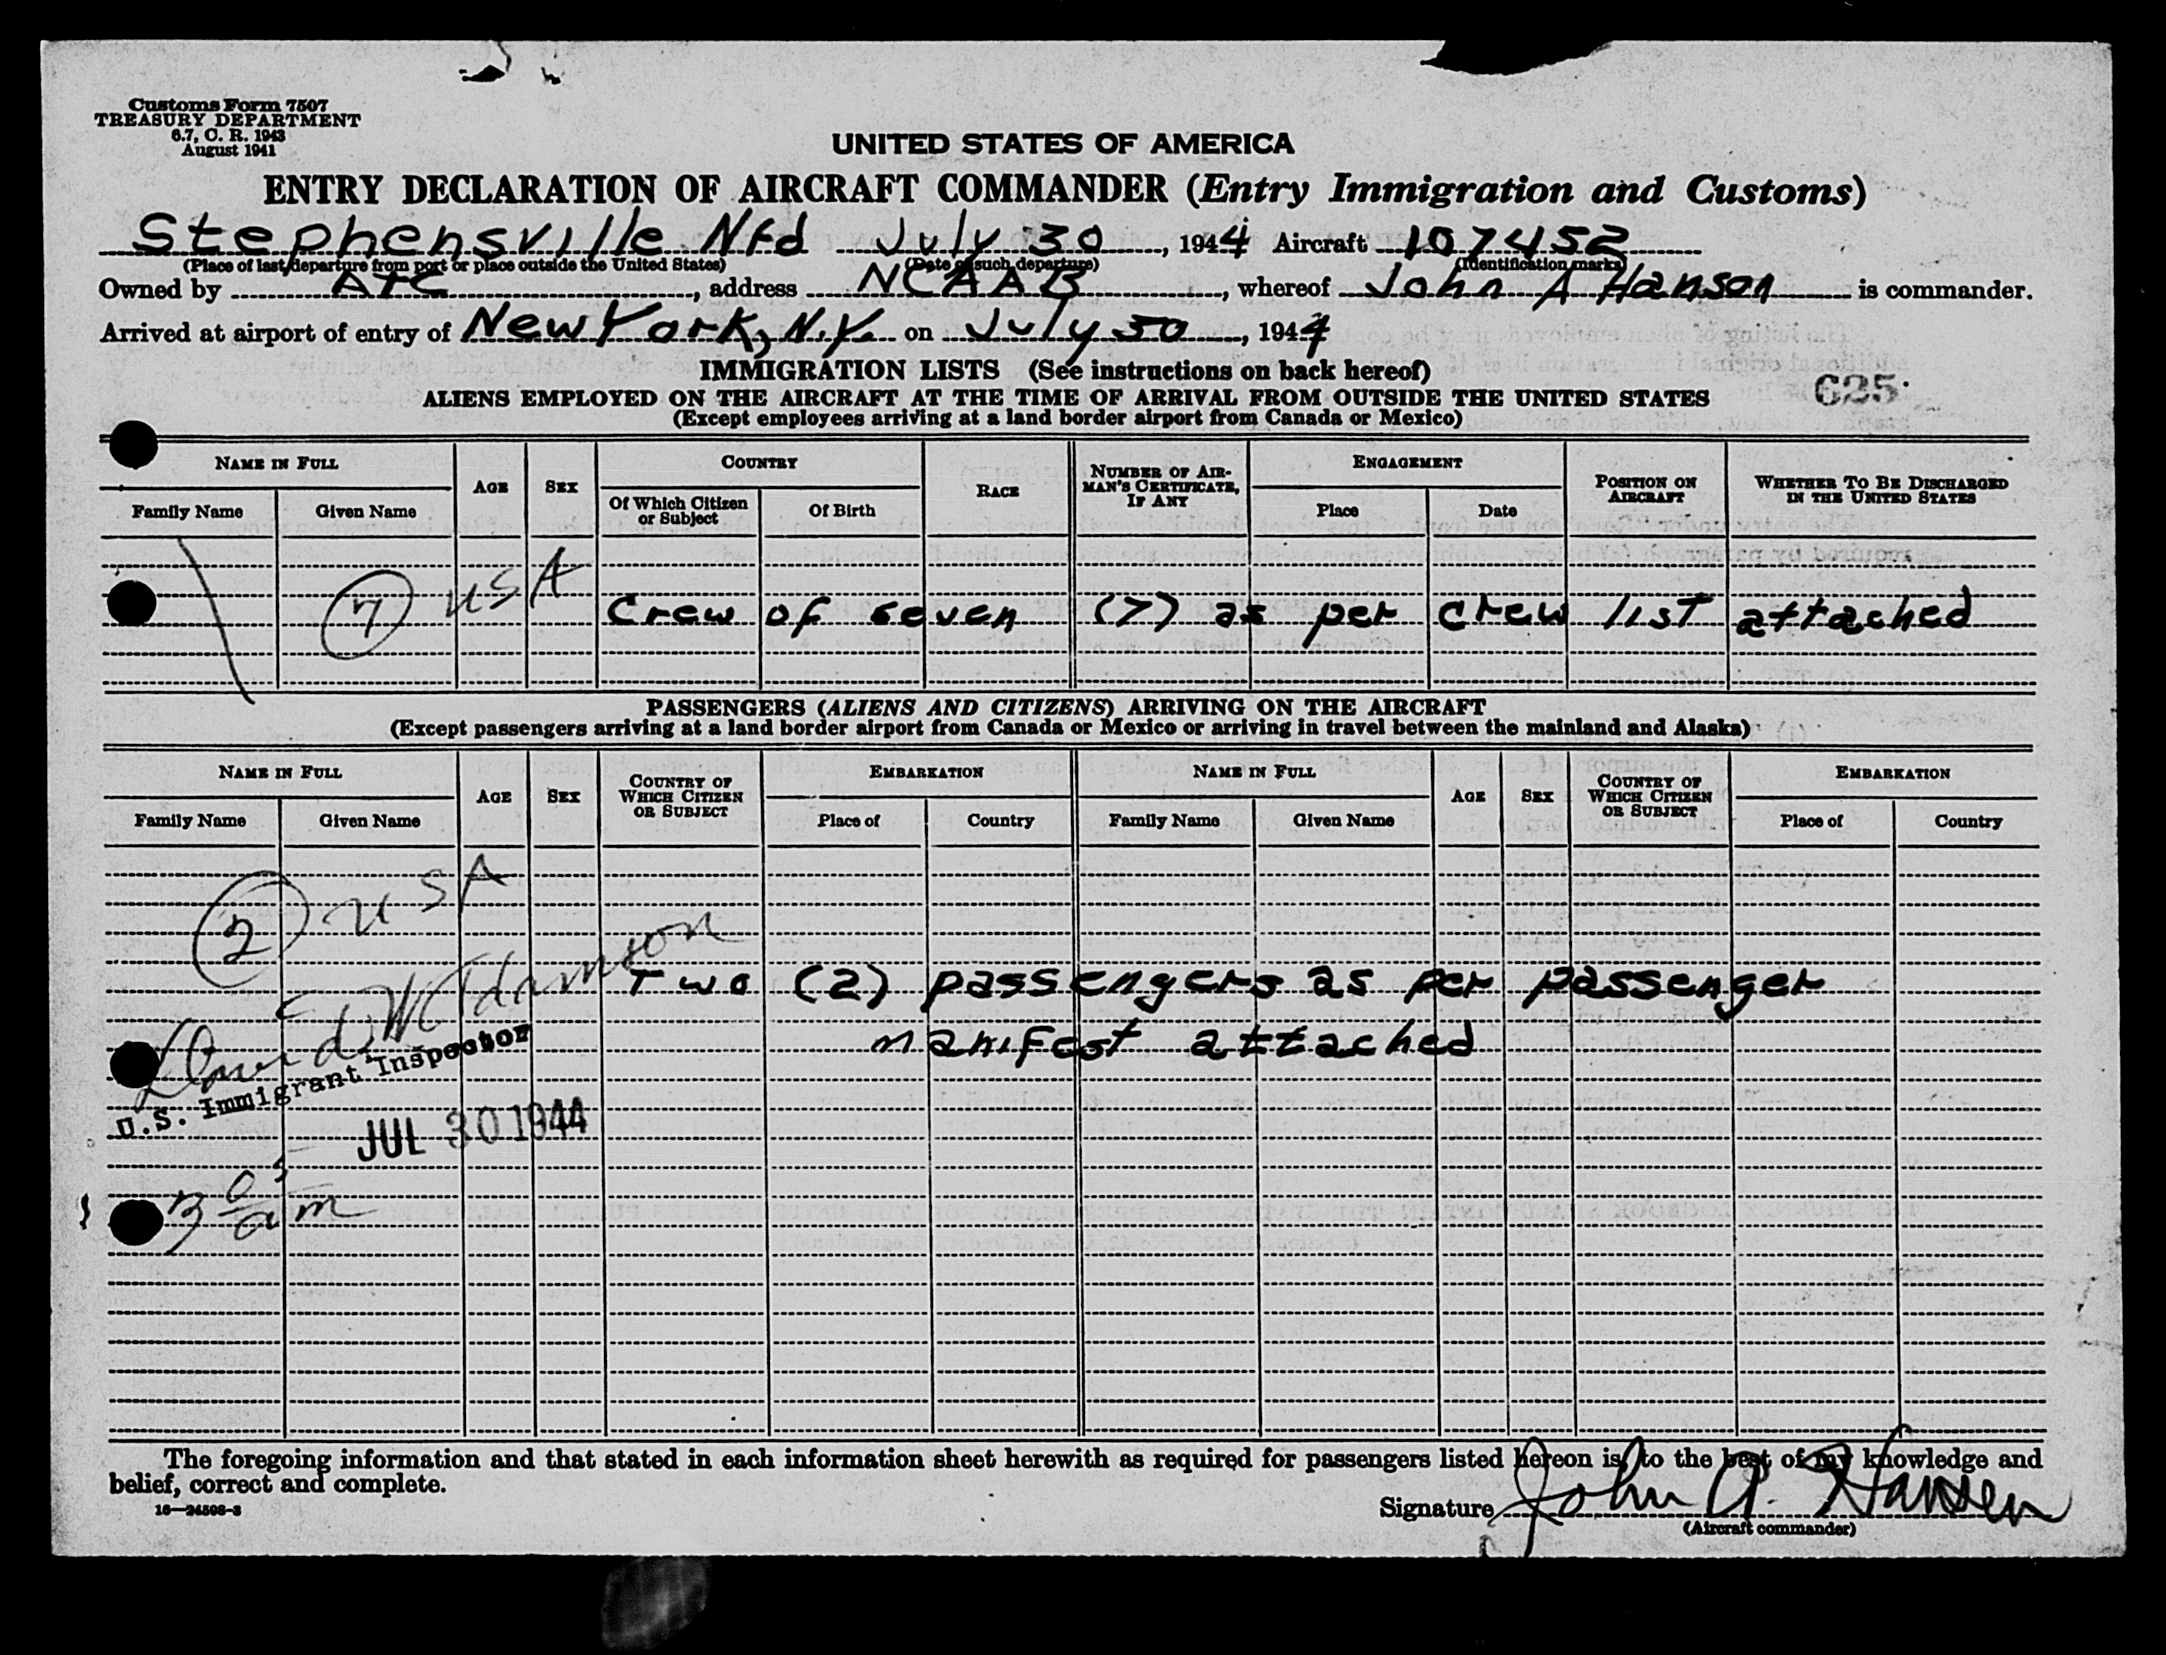 Customs Form 7507
TREASURY DEPARTMENT
6.7, C. R. 1943
August 1941
UNITED STATES OF AMERICA
ENTRY DECLARATION OF AIRCRAFT COMMANDER (Entry Immigration and Customs)
Stephensville Nfd July 30, 1944 Aircraft 107452
(Place of last departure from port or place outside the United States) (Date of such departure) (Identification marks)
Owned by ATC, address NCAAB, whereof John A Hanson is commander.
Arrived at airport of entry of New York, N.Y. on July 30, 1944
IMMIGRATION LISTS (See instructions on back hereof)
ALIENS EMPLOYED ON THE AIRCRAFT AT THE TIME OF ARRIVAL FROM OUTSIDE THE UNITED STATES
625
(Except employees arriving at a land border airport from Canada or Mexico)
NAME IN FULL AGE SEX COUNTRY RACE NUMBER OF AIRMAN'S CERTIFICATE, IF ANY ENGAGEMENT POSITION ON AIRCRAFT WHETHER TO BE DISCHARGED IN THE UNITED STATES
Family Name Given Name Of Which Citizen or Subject Of Birth Place Date
7 USA
Crew of seven (7) as per crew list attached
PASSENGERS (ALIENS AND CITIZENS) ARRIVING ON THE AIRCRAFT
(Except passengers arriving at a land border airport from Canada or Mexico or arriving in travel between the mainland and Alaska)
NAME IN FULL AGE SEX COUNTRY OF WHICH CITIZEN OR SUBJECT EMBARKATION NAME IN FULL AGE SEX COUNTRY OF WHICH CITIZEN OR SUBJECT EMBARKATION
Family Name Given Name Place of Country Family Name Given Name Place of Country
2 USA
Two (2) passengers as per passenger
manifest attached
David W Adamson
U.S. Immigrant Inspector
JUL 30 1944
3 05 am
The foregoing information and that stated in each information sheet herewith as required for passengers listed hereon is, to the best of my knowledge and
belief, correct and complete.
16—24598-3
Signature John A. Hansen
(Aircraft commander)